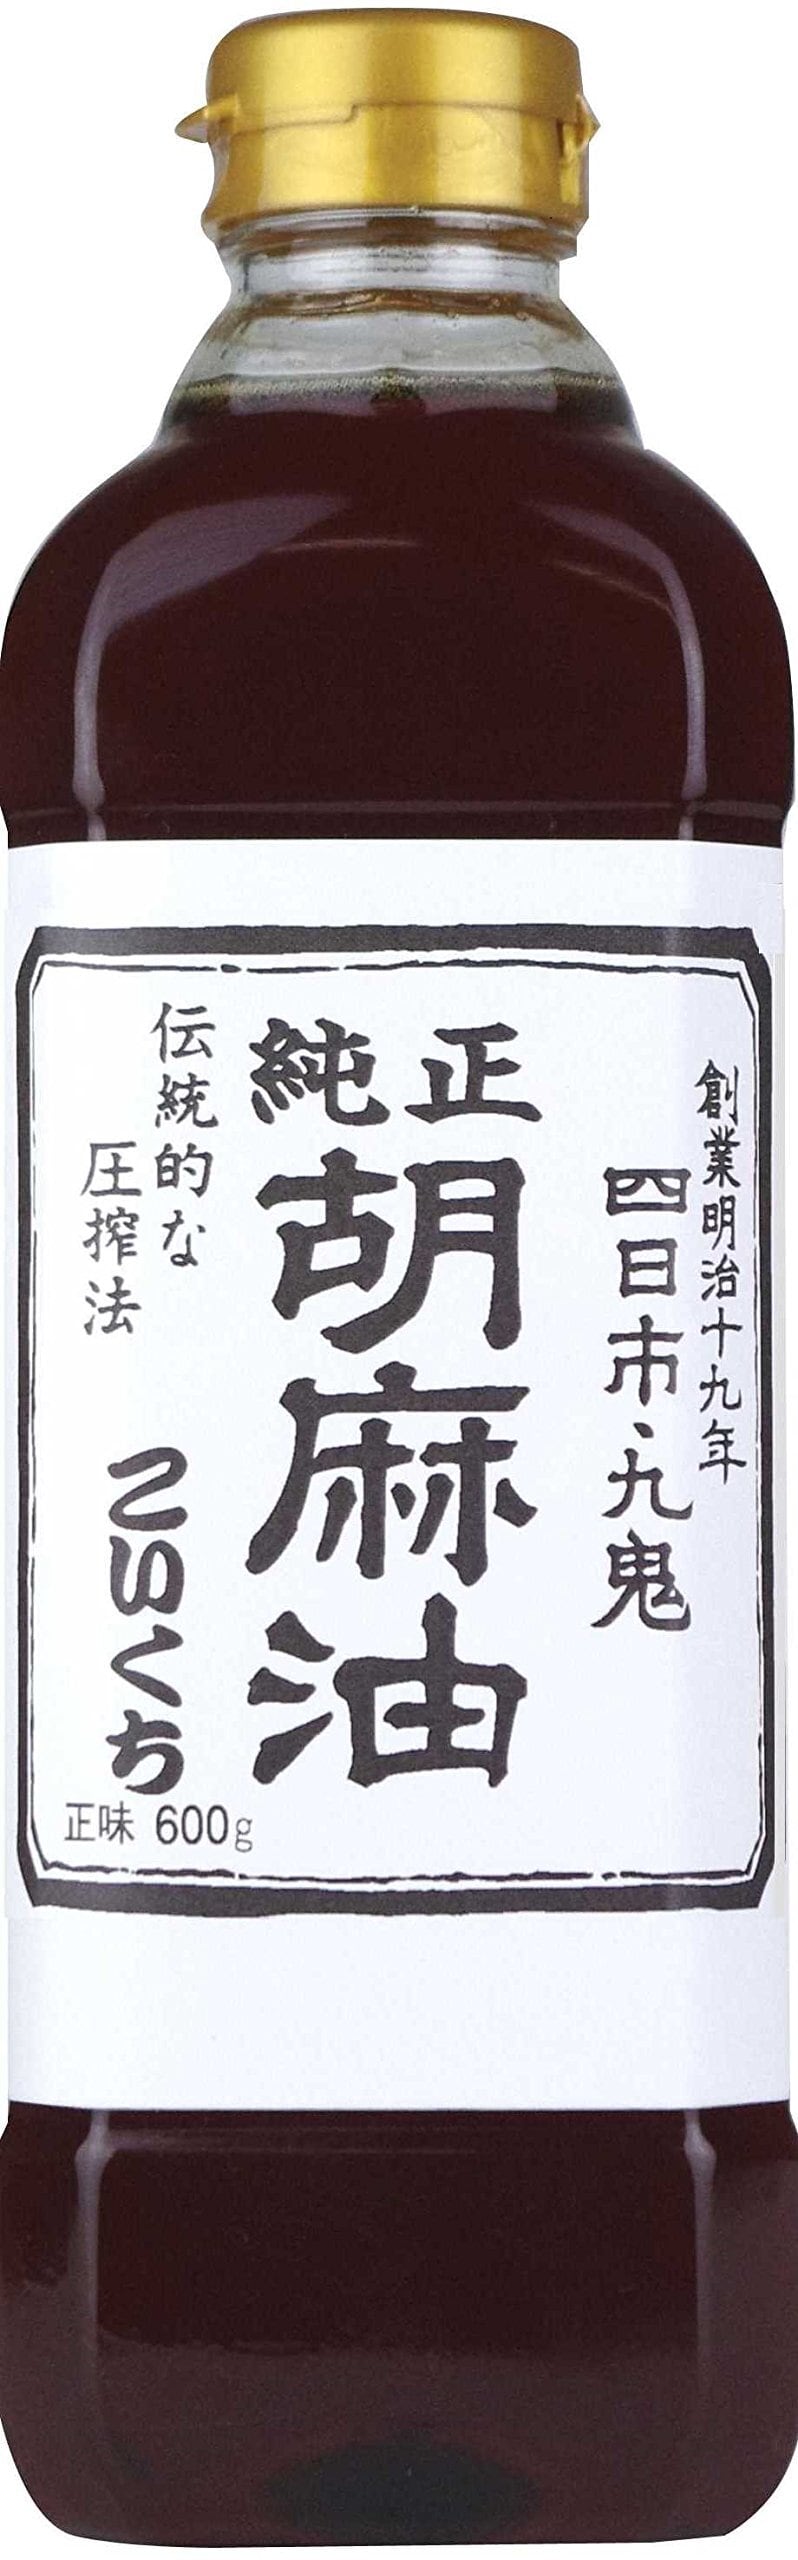 創業明治十九年
四日市、九鬼
正純
胡麻油
伝統的な
圧搾法
こいくち
正味 600g